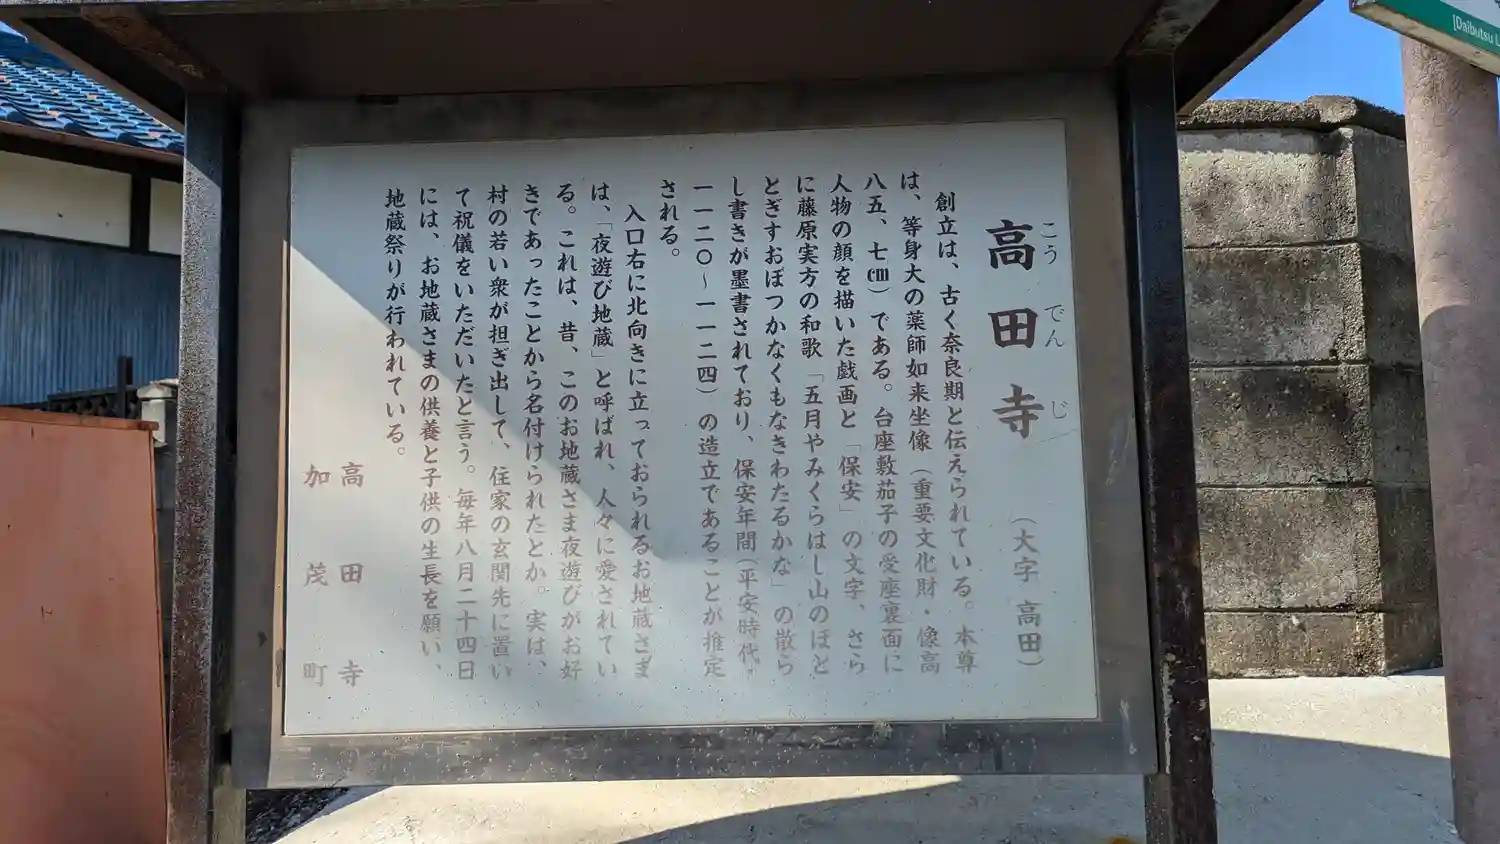 高田寺 （大字 高田）
こうでんじ
創立は、古く奈良期と伝えられている。本尊
は、等身大の薬師如来坐像（重要文化財・像高
八五、七㎝）である。台座敷茄子の受座裏面に
人物の顔を描いた戯画と「保安」の文字、さら
に藤原実方の和歌「五月やみくらはし山のほと
とぎすおぼつかなくもなきわたるかな」の散ら
し書きが墨書されており、保安年間（平安時代。
一一二〇～一一二四）の造立であることが推定
される。
入口右に北向きに立っておられるお地蔵さま
は、「夜遊び地蔵」と呼ばれ、人々に愛されてい
る。これは、昔、このお地蔵さま夜遊びがお好
きであったことから名付けられたとか。実は、
村の若い衆が担ぎ出して、住家の玄関先に置い
て祝儀をいただいたと言う。毎年八月二十四日
には、お地蔵さまの供養と子供の生長を願い、
地蔵祭りが行われている。
高田寺
加茂町
[Daibutsu L